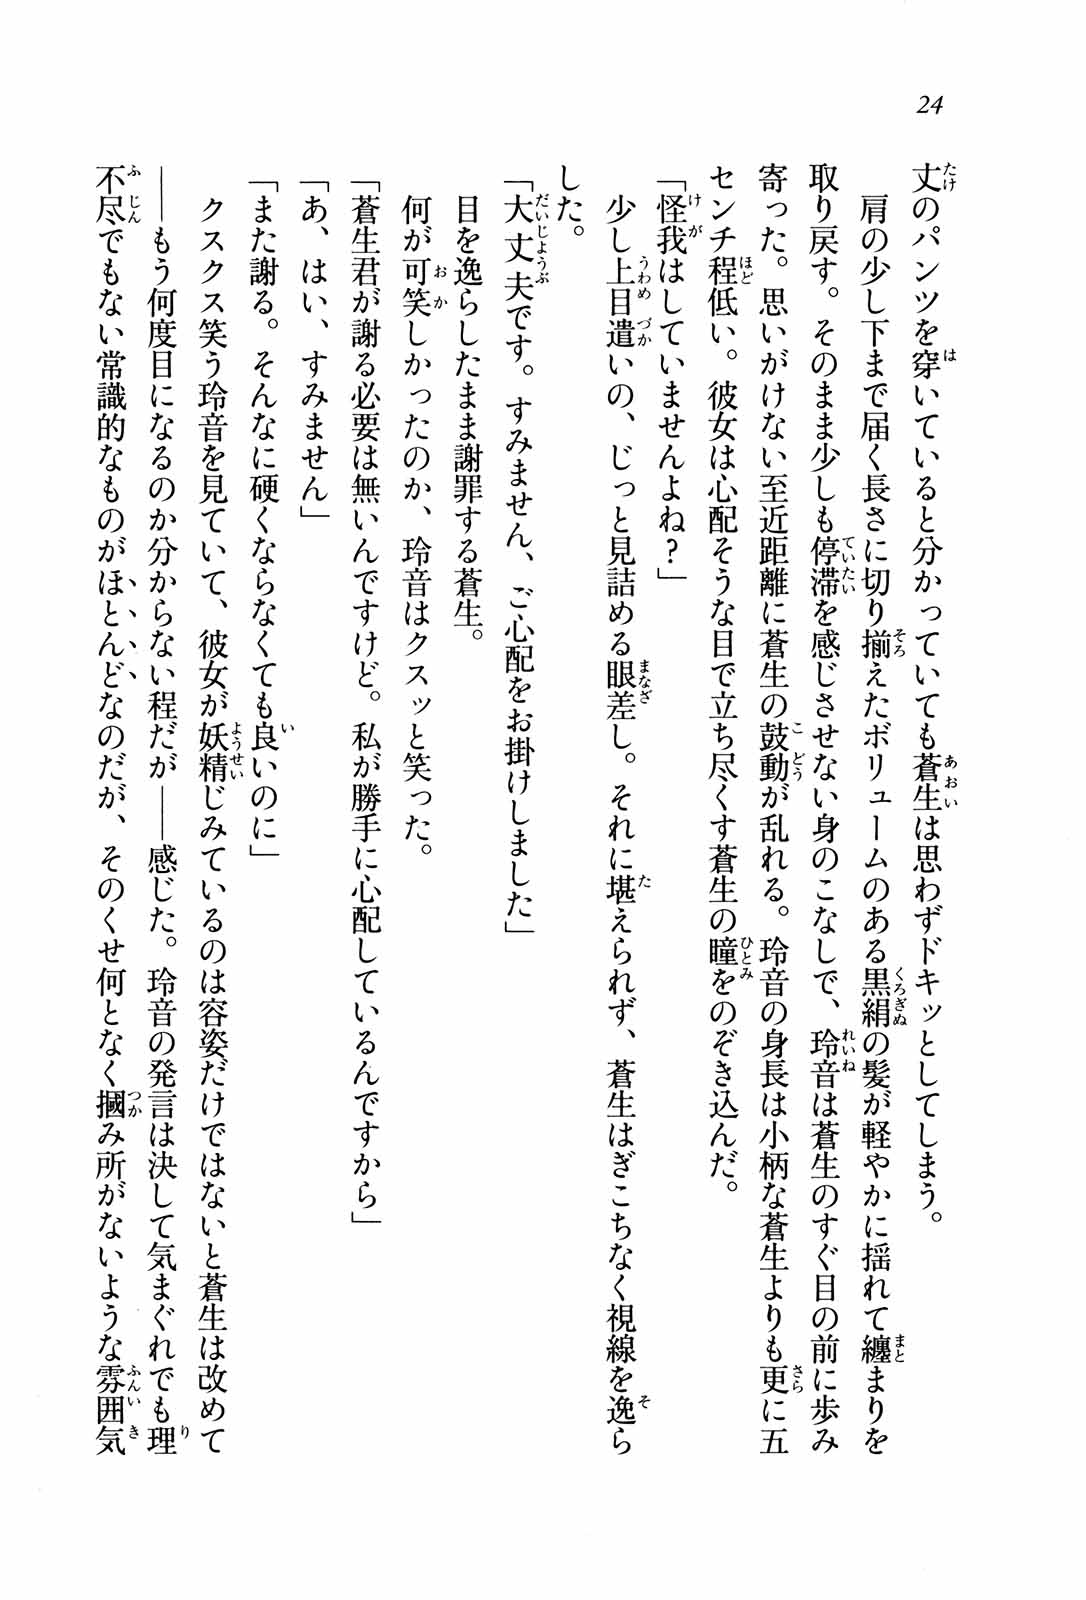 24
丈のパンツを穿いていると分かっていても蒼生は思わずドキッとしてしまう。
　肩の少し下まで届く長さに切り揃えたボリュームのある黒絹の髪が軽やかに揺れて纏まりを
取り戻す。そのまま少しも停滞を感じさせない身のこなしで、玲音は蒼生のすぐ目の前に歩み
寄った。思いがけない至近距離に蒼生の鼓動が乱れる。玲音の身長は小柄な蒼生よりも更に五
センチ程低い。彼女は心配そうな目で立ち尽くす蒼生の瞳をのぞき込んだ。
「怪我はしていませんよね？」
　少し上目遣いの、じっと見詰める眼差し。それに堪えられず、蒼生はぎこちなく視線を逸ら
した。
「大丈夫です。すみません、ご心配をお掛けしました」
　目を逸らしたまま謝罪する蒼生。
　何が可笑しかったのか、玲音はクスッと笑った。
「蒼生君が謝る必要は無いんですけど。私が勝手に心配しているんですから」
「あ、はい、すみません」
「また謝る。そんなに硬くならなくても良いのに」
　クスクス笑う玲音を見ていて、彼女が妖精じみているのは容姿だけではないと蒼生は改めて
――もう何度目になるのか分からない程だが――感じた。玲音の発言は決して気まぐれでも理
不尽でもない常識的なものがほとんどなのだが、そのくせ何となく摑み所がないような雰囲気